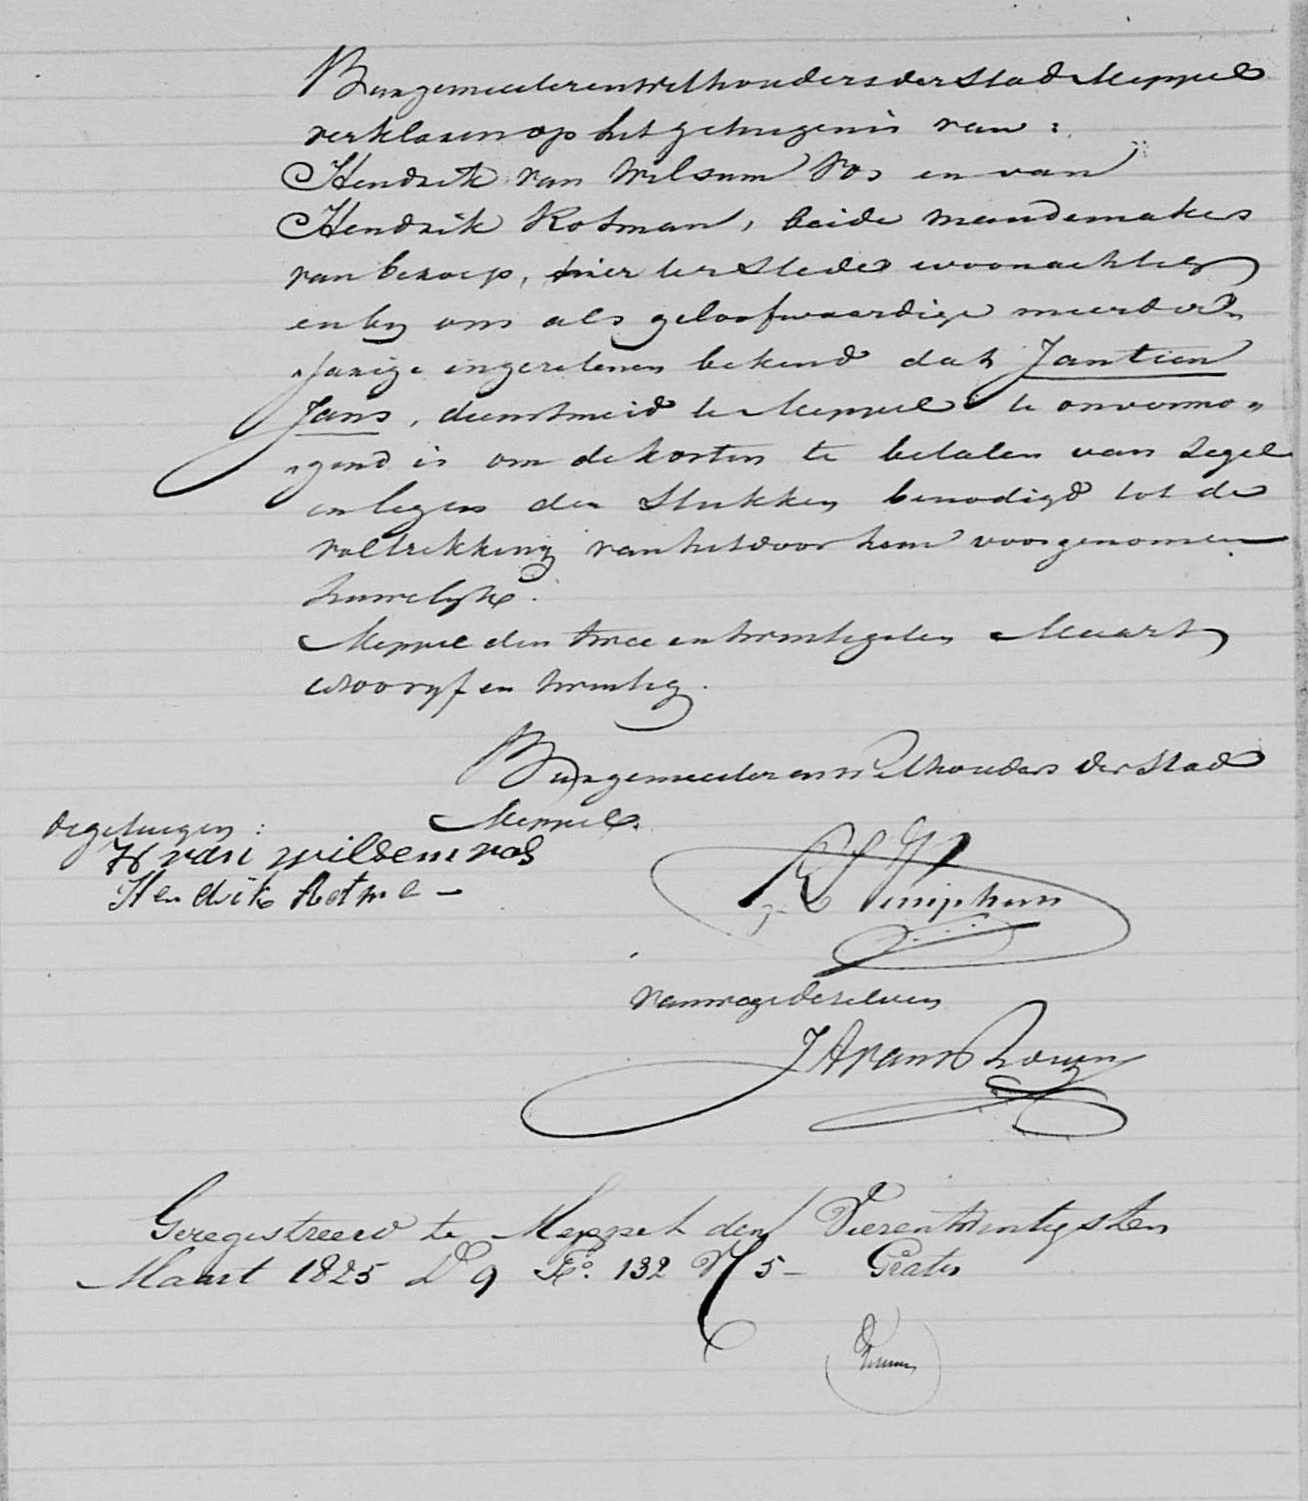 Burgemeester en Wethouders der Stad Meppel
verklaren op het getuigenis van:
Hendrik van Wilsum Vos en van
Hendrik Rotman, beide mandemakers
van beroep, hier ter Stede woonachtig
en by ons als geloofwaardige meerder„
„jarige ingezetenen bekend dat Jantien
Jans, dienstmeid te Meppel te onvermo„
„gend is om de kosten te betalen van Zegel
en leges der Stukken benodigd tot de
voltrekking van het door hem voorgenomen
huwelijk.
Meppel den twee en twintigsten Maart
1800 vyf en twintig.
Burgemeester en Wethouders der Stad
Meppel.
de getuigen:
H van wilsem vos
Hendrik Rotme
Kniphorst
Van wege dezelven
J A van
Geregistreerd te Meppel den Vierentwintigsten
Maart 1825 D 9 Fo. 132 V 5 - Gratis